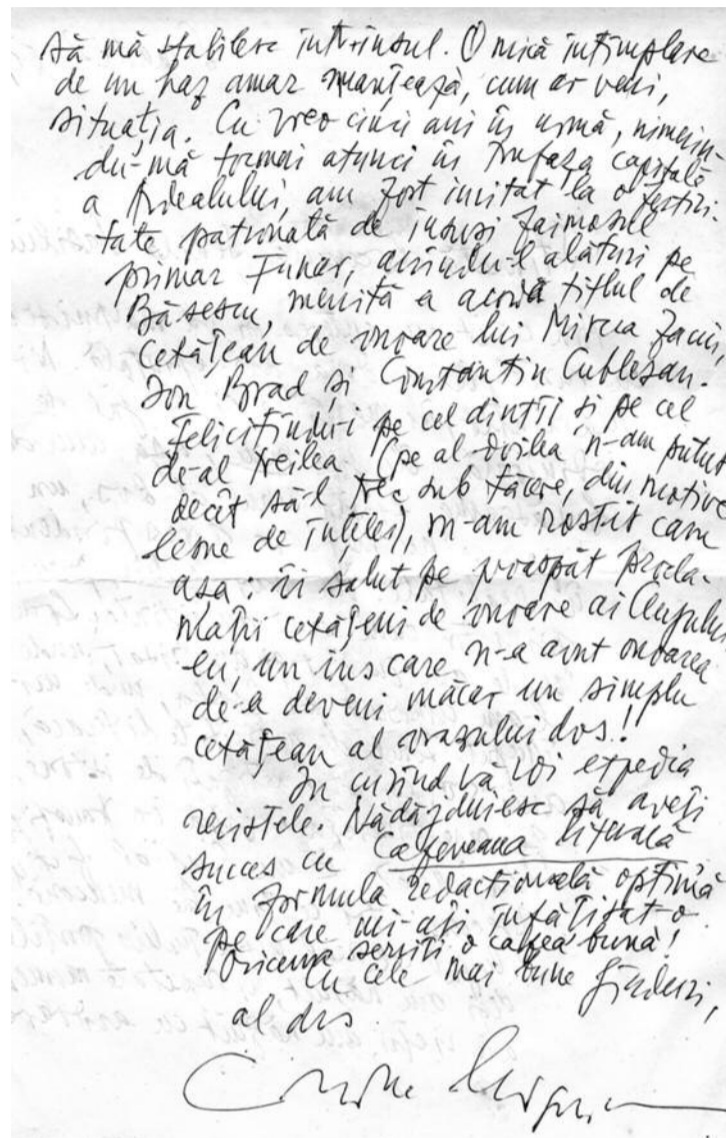 să mă stabilesc într-însul. O mică întîmplare
de un haz amar nuanțează, cum ar veni,
situația. Cu vreo cinci ani în urmă, nimerin-
du-mă tocmai atunci în trufașa capitală
a Ardealului, am fost invitat la o festivi-
tate patronată de însuși faimosul
primar Funar, avîndu-l alături pe
Băsescu, menită a acorda titlul de
cetățean de onoare lui Mircea Zaciu,
Ion Brad și Constantin Cubleșan.
Felicitîndu-i pe cel dintîi și pe cel
de-al treilea (pe al doilea n-am putut
decît să-l trec sub tăcere, din motive
lesne de înțeles), m-am rostit cam
așa: îi salut pe proaspăt procla-
mații cetățeni de onoare ai Clujului,
eu, un ins care n-a avut onoarea
de-a deveni măcar un simplu
cetățean al orașului dvs.!
În curînd vă voi expedia
revistele. Nădăjduiesc să aveți
succes cu Cafeneaua literară
în formula redacțională optimă
pe care mi-ați înfățișat-o.
Oricema serviți o cafea bună!
Cu cele mai bune gînduri,
al dvs